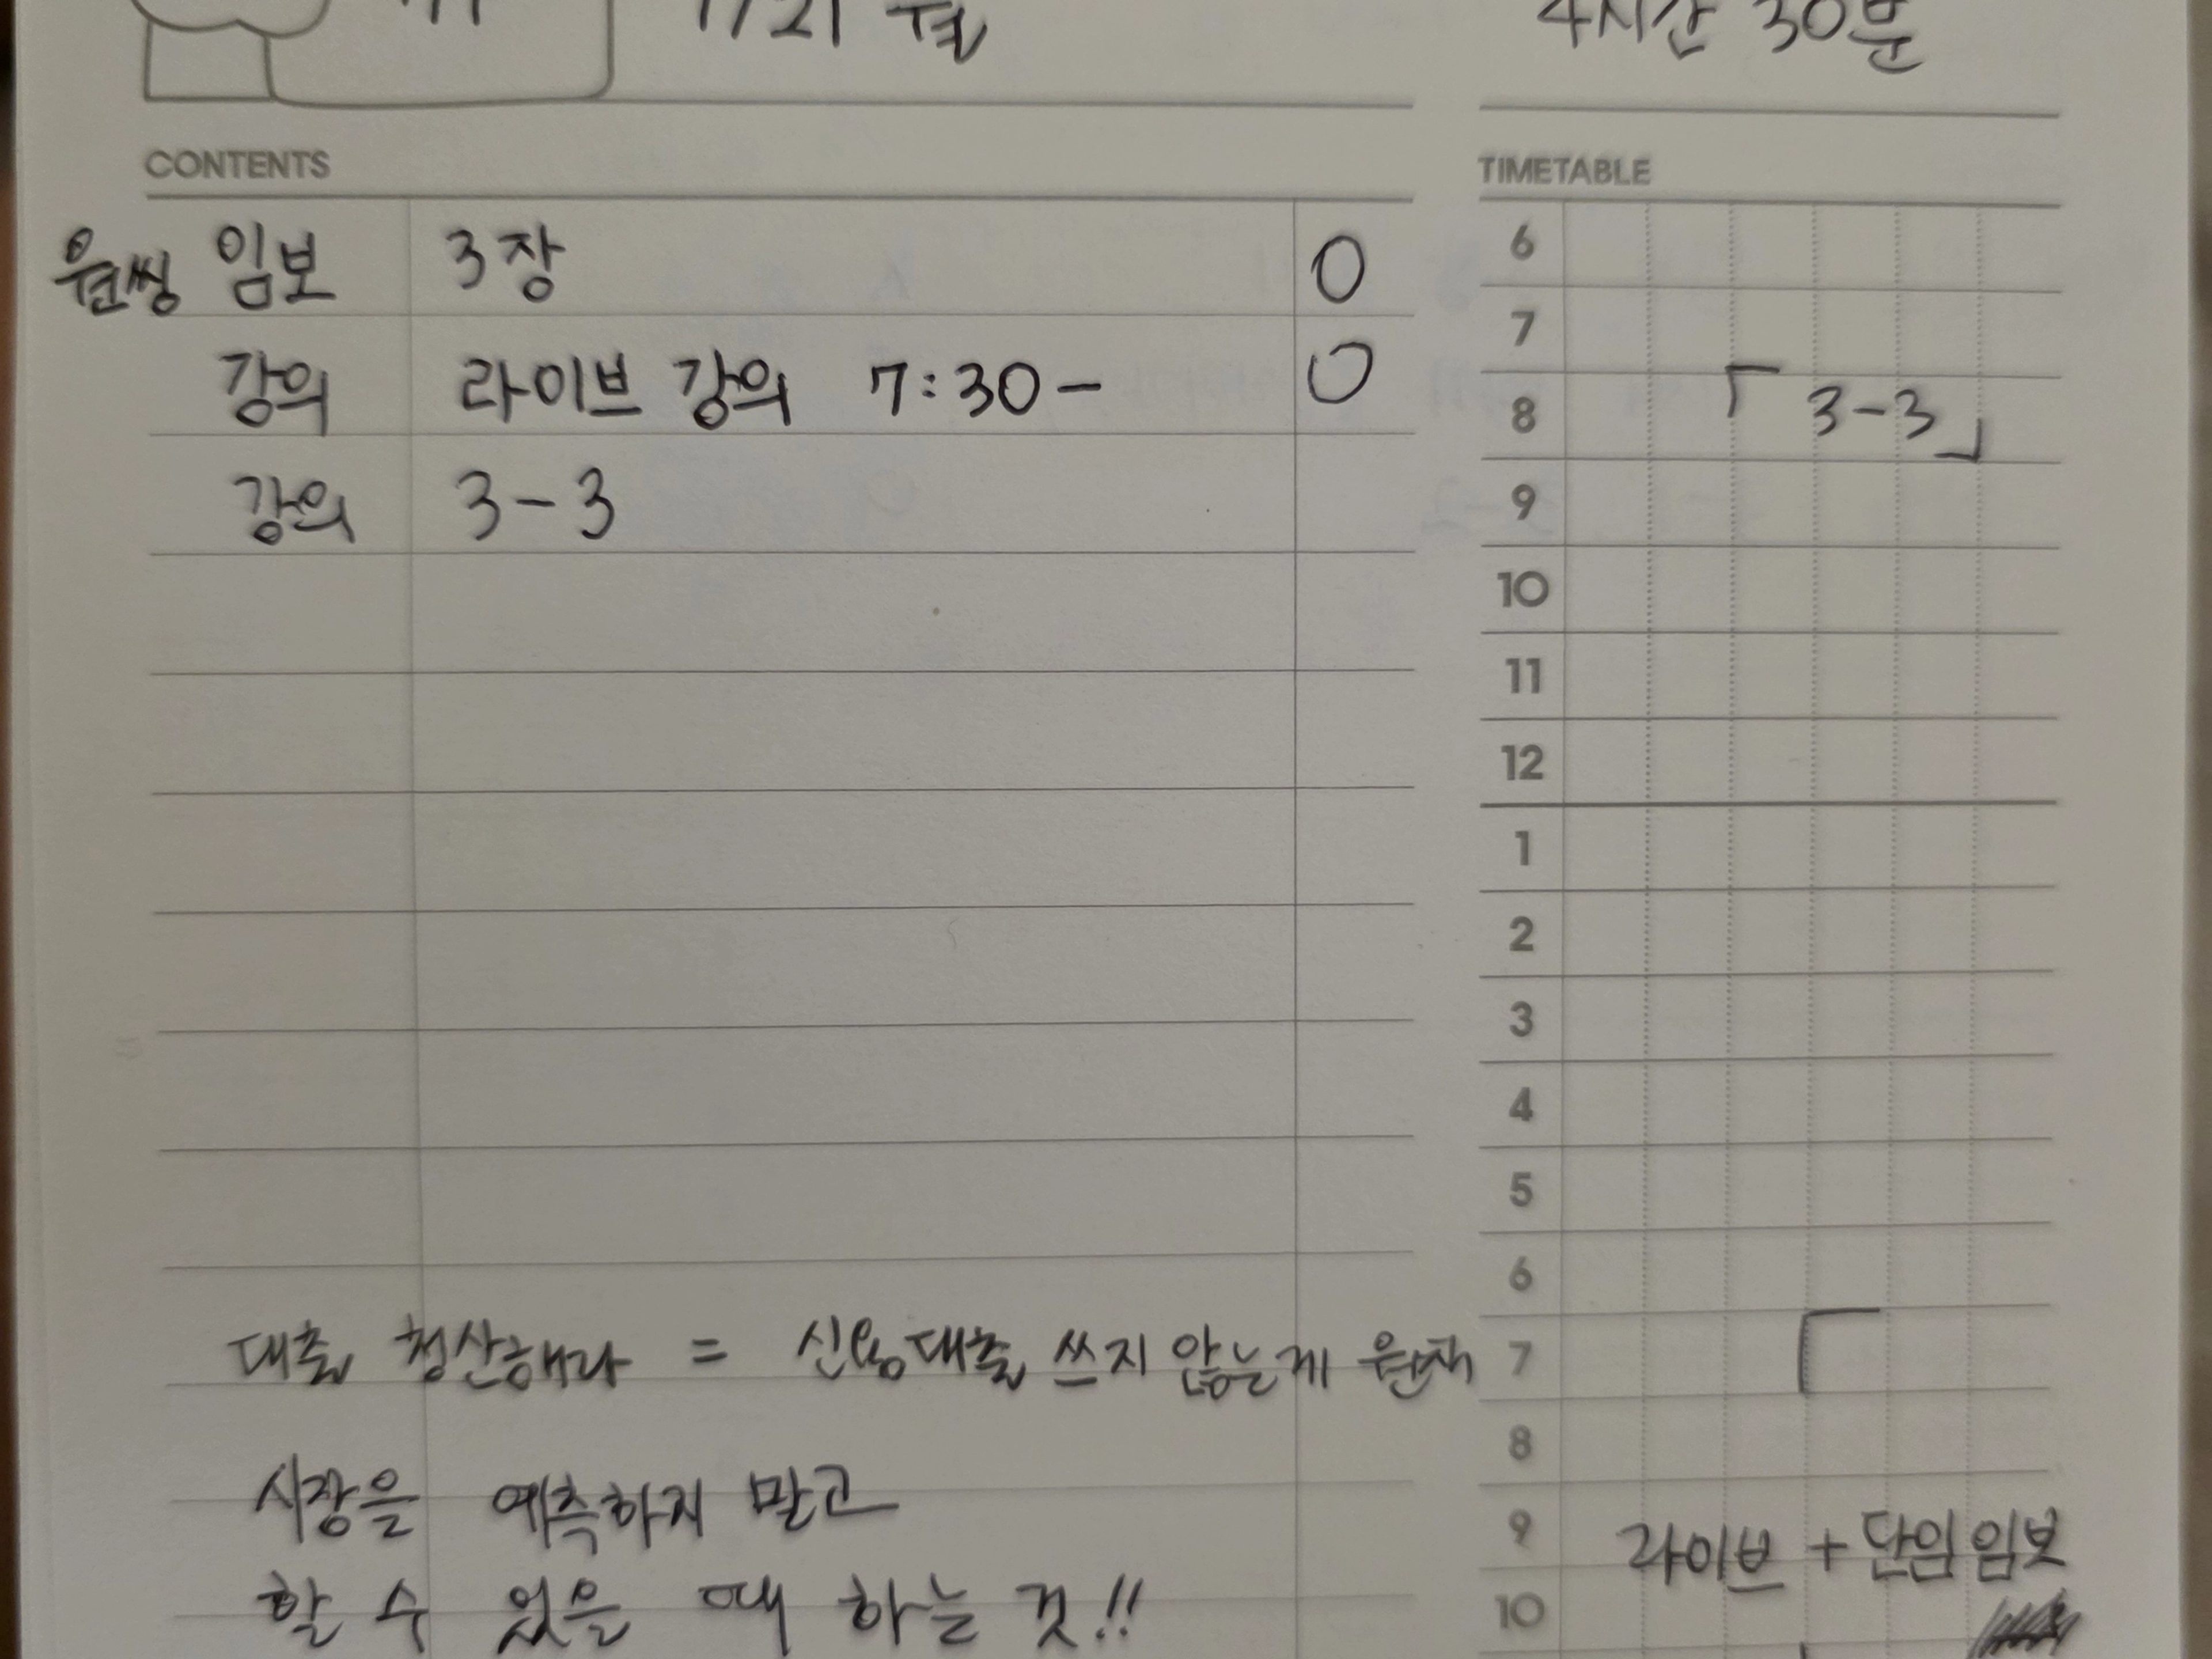 7/21 월
4시간 30분
CONTENTS
원씽 임보 3장 O
강의 라이브 강의 7:30- O
강의 3-3
대출 청산해라 = 신용대출 쓰지 않는게 원칙
시장을 예측하지 말고
할 수 있을 때 하는 것!!
TIMETABLE
6
7
8 「3-3」
9
10
11
12
1
2
3
4
5
6
7
8
9 라이브 + 단임 임보
10